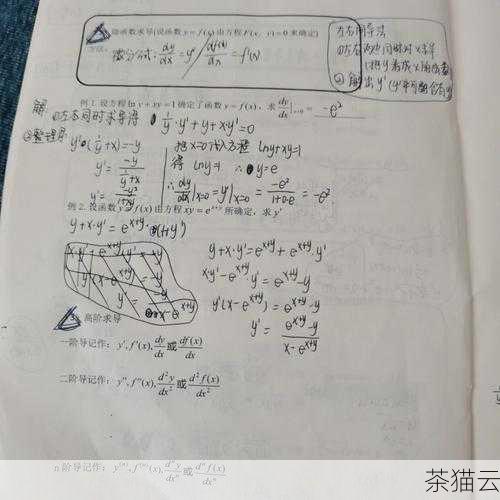 隐函数求导(设函数 y = f(x) 由方程 F(x, y) = 0 来确定)
方法:
微分方式: dy/dx = y' / df(x)/dx = f'(x)
左右同导法
①左右两边同时对x求导
(把y看成x的函数)
② 解出y'
例 1. 设方程 ln y + xy = 1 确定了函数 y = f(x), 求 dy/dx|x=0 = -e²
解: ①左右同时求导得 1/y·y'+y+x·y'=0
②整理得: y'(1/y+x)=-y
y' = -y/(1/y+x)
y' = -y²/(1+xy)
把 x=0 代入方程 lny+xy=1
得 lny=1 ∴ y=e
∴ dy/dx|x=0 = y'|x=0 = -e²/(1+0·e) = -e²
例 2. 设函数 y = f(x) 由方程 xy = e^(x+y) 所确定, 求 y'
y+x·y' = e^(x+y)·(1+y')
y+x·y' = e^(x+y)+e^(x+y)·y'
x·y'-e^(x+y)·y' = e^(x+y)-y
y'(x-e^(x+y)) = e^(x+y)-y
y' = (e^(x+y)-y)/(x-e^(x+y))
高阶求导
一阶导记作: y', f'(x), dy/dx 或 df(x)/dx
二阶导记作: y'', f''(x), d²y/dx² 或 d²f(x)/dx²
n 阶导记作: y⁽ⁿ⁾, f⁽ⁿ⁾(x), dⁿy/dxⁿ 或 dⁿf(x)/dxⁿ
茶猫云